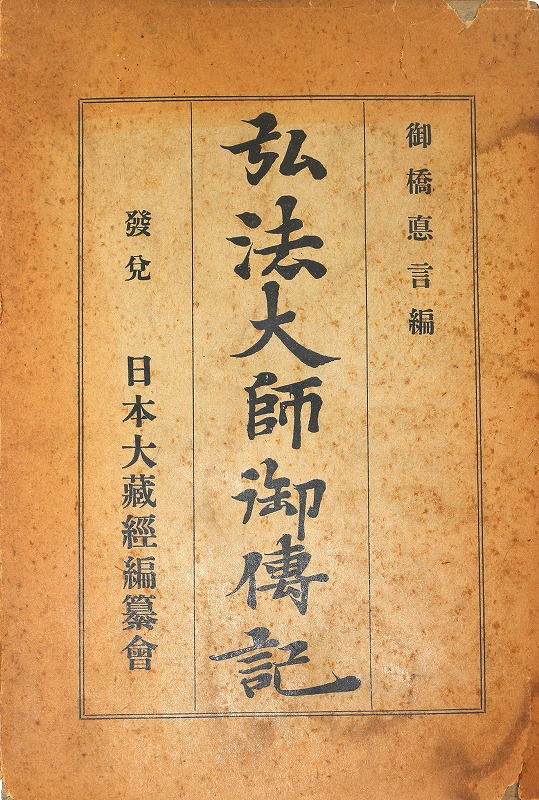 御橋悳言編
弘法大師御傳記
發兌　日本大藏經編纂會